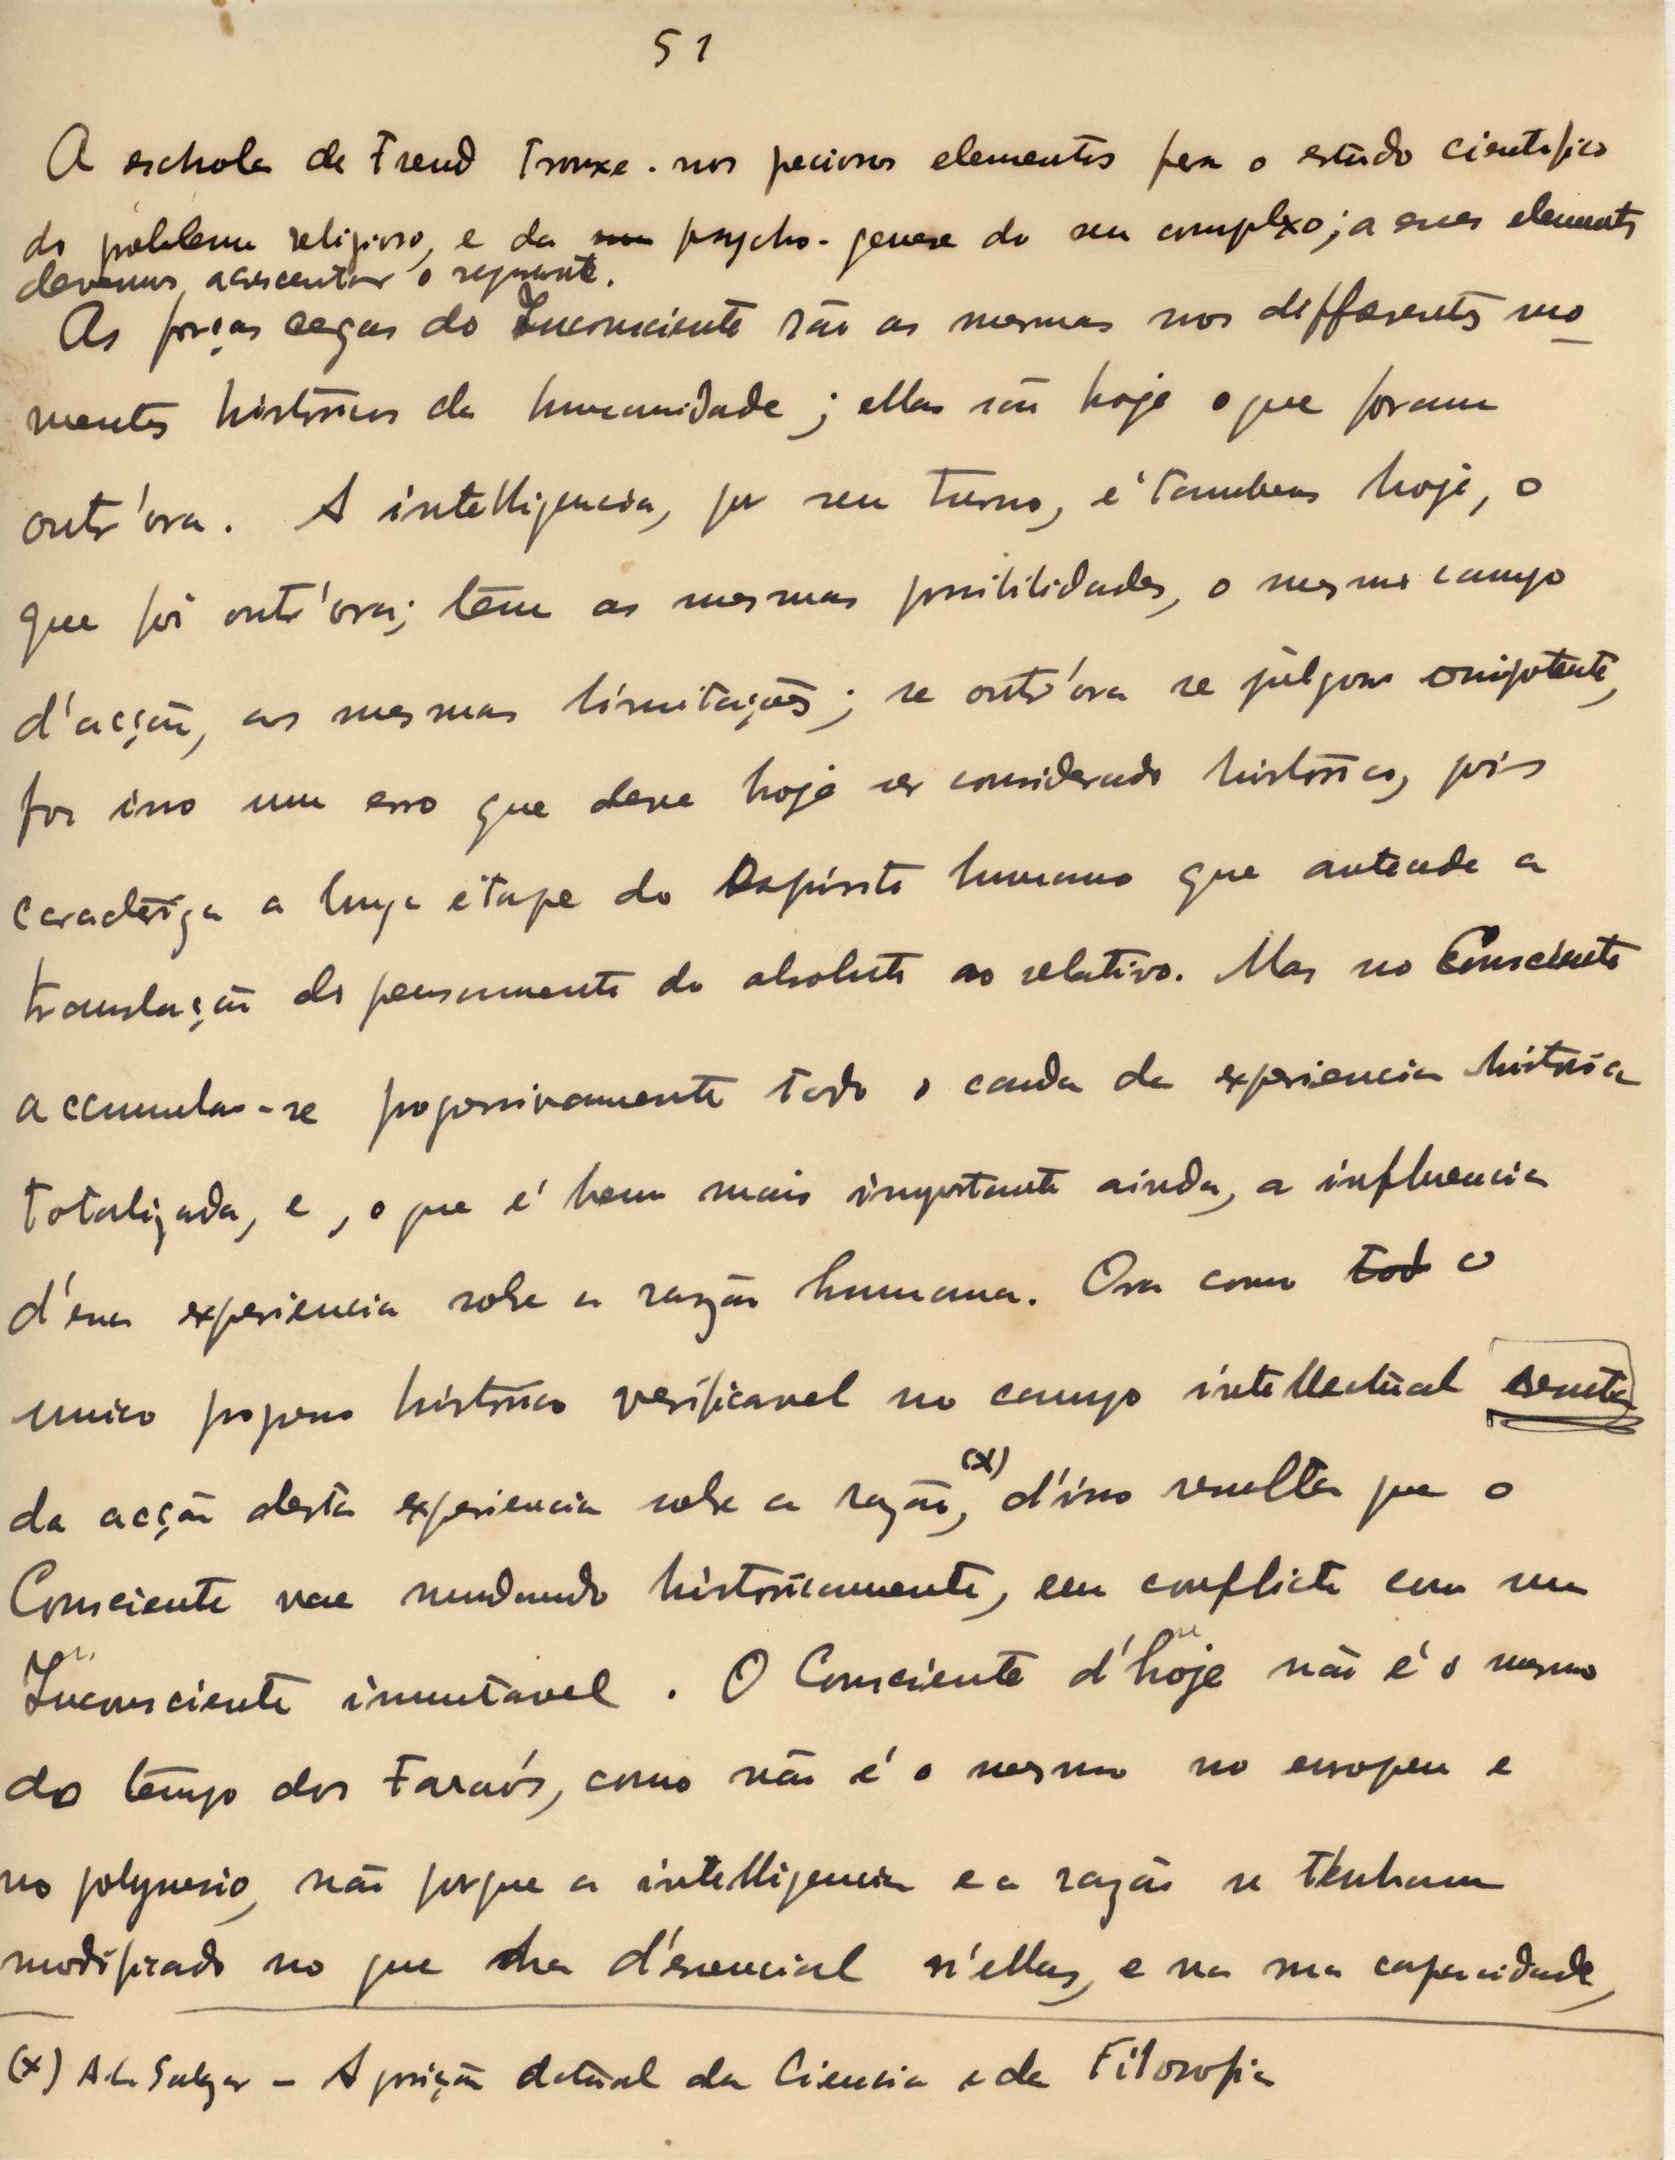 51
A eschola de Freud trouxe-nos preciosos elementos para o estudo cientifico
do problema religioso, e da sua psycho-genese do seu complexo; a esses elementos
devemos acrescentar o seguinte.
As forças cegas do Inconsciente são as mesmas nos differentes mo
mentos historicos da humanidade; ellas são hoje o que foram
outr'ora. A intelligencia, por seu turno, é tambem hoje, o
que foi outr'ora; tem as mesmas possibilidades, o mesmo campo
d'acção, as mesmas limitações; se outr'ora se julgou omnipotente,
foi isso um erro que deve hoje ser considerado historico, pois
caracteriza a longa étape do Espirito humano que antecede a
translação do pensamento do absoluto ao relativo. Mas no Consciente
accumula-se progressivamente todo o cauda da experiencia historica
totalizada, e, o que é bem mais importante ainda, a influencia
d'essa experiencia sobre a razão humana. Ora como tod o
unico progresso historico verificavel no campo intellectual resulta
da acção desta experiencia sobre a razão,(x) d'isso resulta que o
Consciente vae mudando historicamente, em conflicto com um
Inconsciente immutavel. O Consciente d'hoje não é o mesmo
do tempo dos Faraós, como não é o mesmo no europeu e
no polynesio, não porque a intelligencia e a razão se tenham
modificado no que ha d'essencial n'ellas, e na sua capacidade,
(x) Abel Salazar – A posição actual da Ciencia e da Filosofia